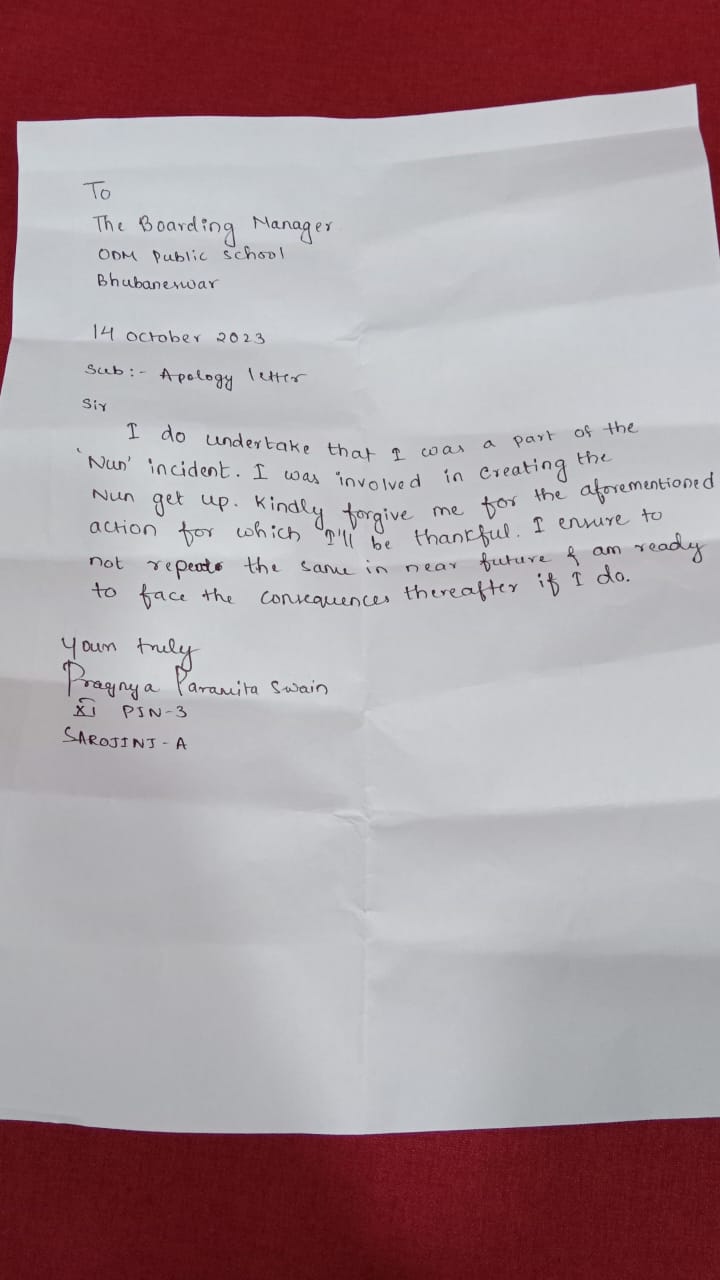 To
The Boarding Manager
ODM Public School
Bhubaneswar
14 October 2023
Sub:- Apology letter
Sir
I do undertake that I was a part of the
'Nun' incident. I was involved in creating the
Nun get up. Kindly forgive me for the aforementioned
action for which I'll be thankful. I ensure to
not repeate the same in near future & am ready
to face the consequences thereafter if I do.
Yours truly
Pragnya Paramita Swain
XI PSN-3
SAROJINI-A